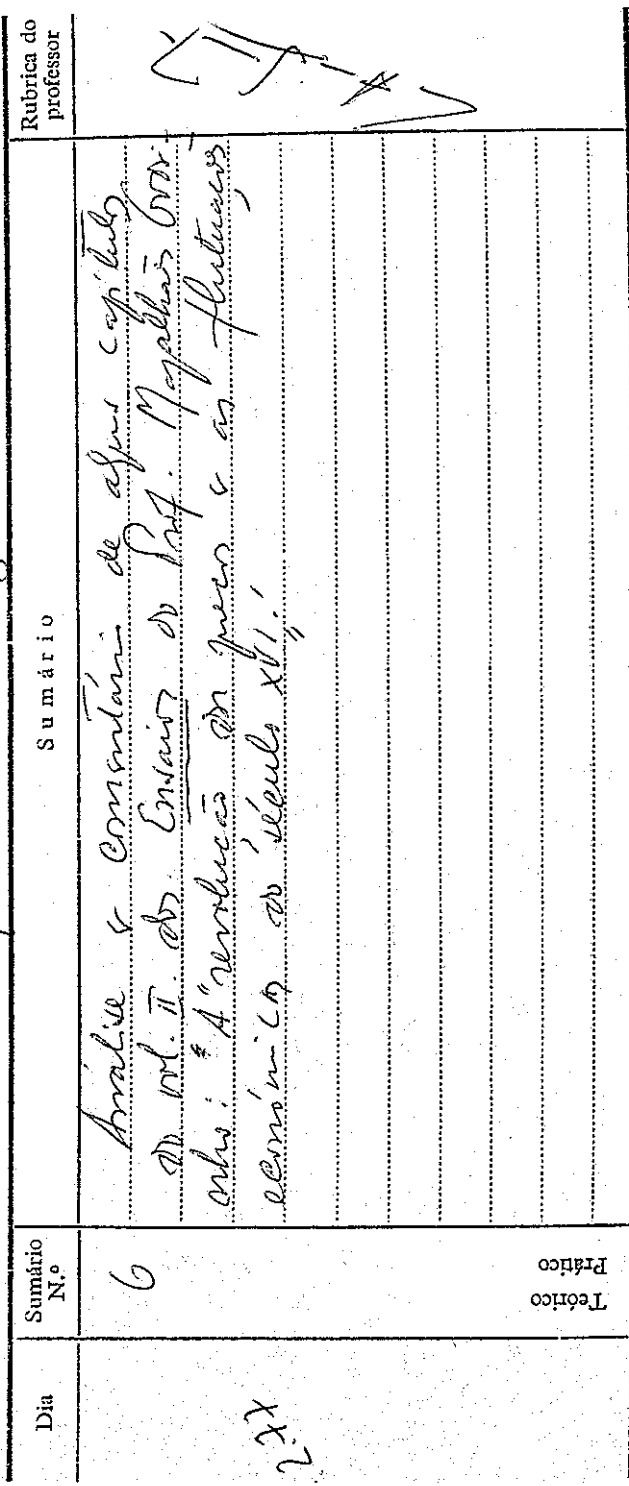 Dia
Sumário N.º
Sumário
Rubrica do professor
6
Teórico
Prático
Análise e comentário de alguns capítulos
do vol. II dos Ensaios do Prof. Magalhães Godi-
nho: "A "revolução dos preços e as flutuações
económicas do século XVI."